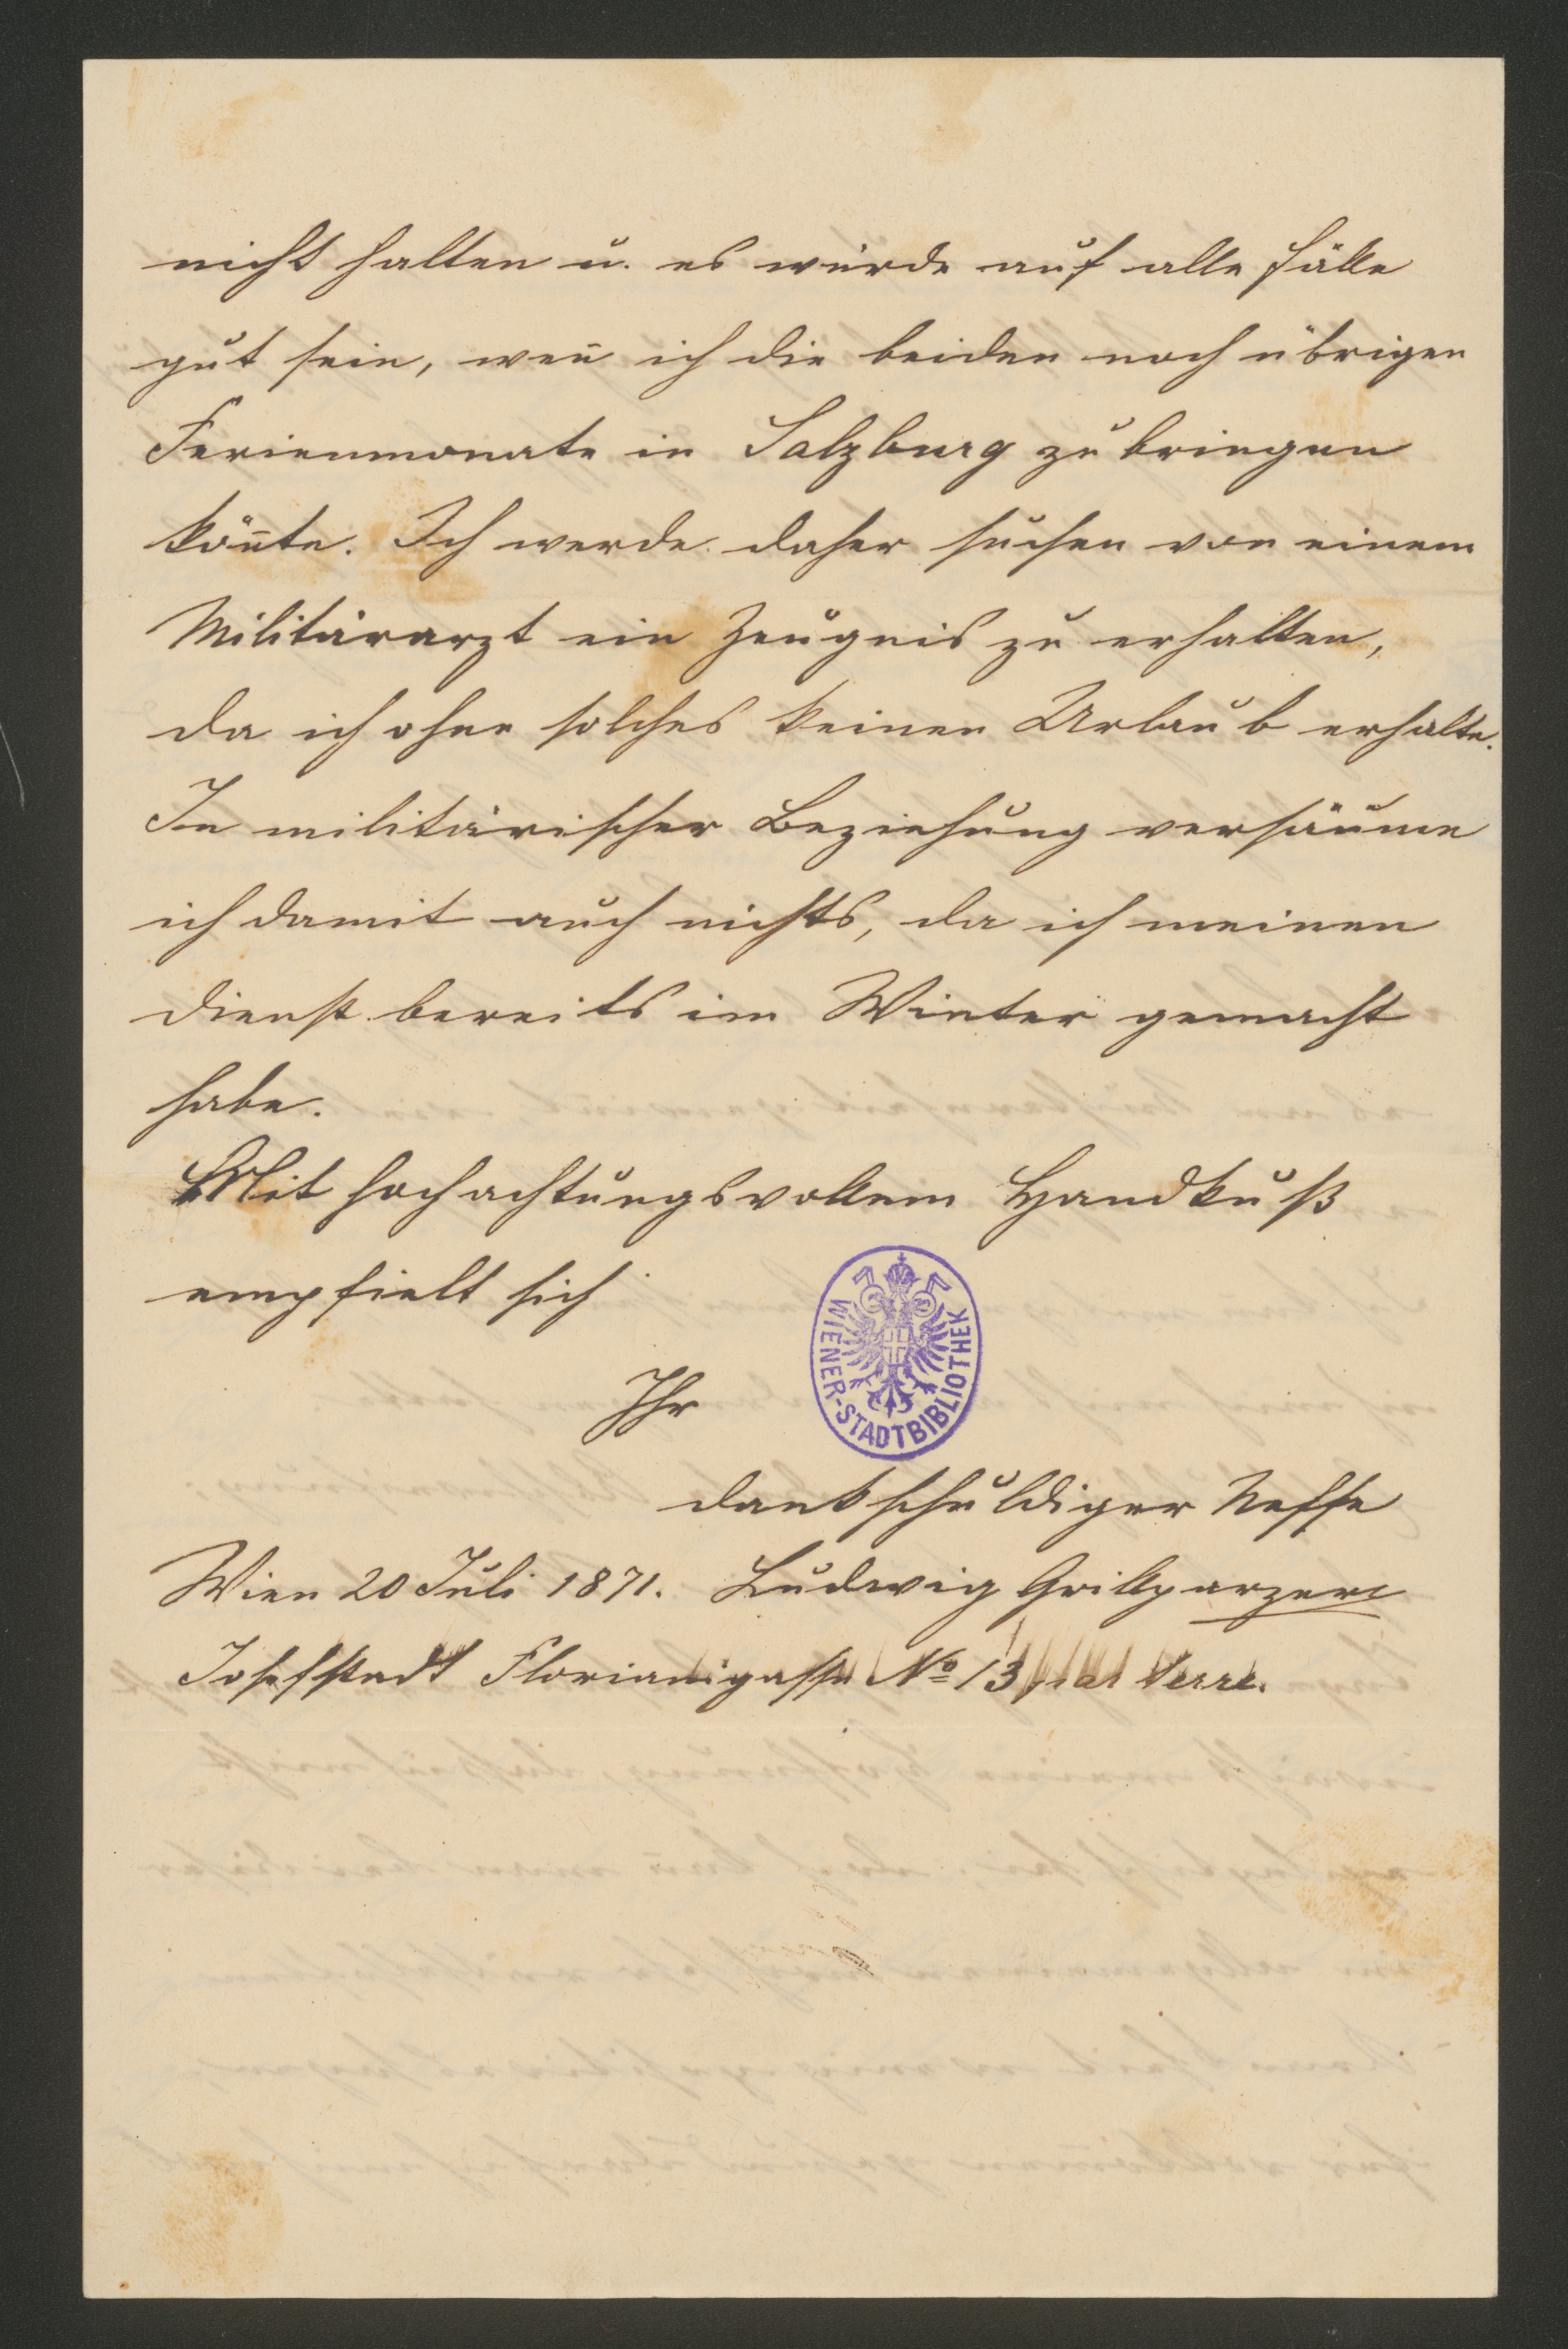 nicht halten u. es würde auf alle Fälle
gut sein, wen̄ ich die beiden noch übrigen
Ferienmonate in Salzburg zubringen
kön̄te. Ich werde daher suchen von einem
Militärarzt ein Zeugnis zu erhalten,
da ich ohne solches keinen Urlaub erhalte.
In militärischer Beziehung versäume
ich damit auch nichts, da ich meinen
Dienst bereits im Winter gemacht
habe.
Mit hochachtungsvollem Handkuß
empfielt sich
WIENER-STADTBIBLIOTHEK
Ihr
dankschuldiger Neffe
Wien 20 Juli 1871. Ludwig Grillparzer
Josefstadt Florianigasse No 13 par terre.